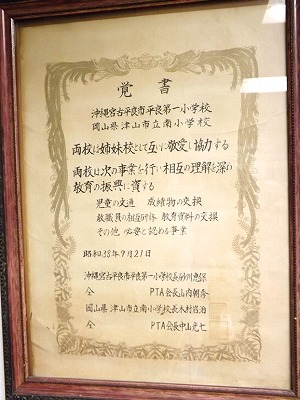 覚書
沖縄宮古平良市平良第一小学校
岡山県津山市立南小学校
両校は姉妹校として互いに敬愛し協力する
両校は次の事業を行い相互の理解を深め
教育の振興に資する
児童の文通 成績物の交換
教職員の相互研修 教育資料の交換
その他 必要と認める事業
昭和38年9月21日
沖縄宮古平良市平良第一小学校長砂川恵保
仝 PTA会長山内朝秀
岡山県津山市立南小学校長木村岩治
仝 PTA会長中山光七